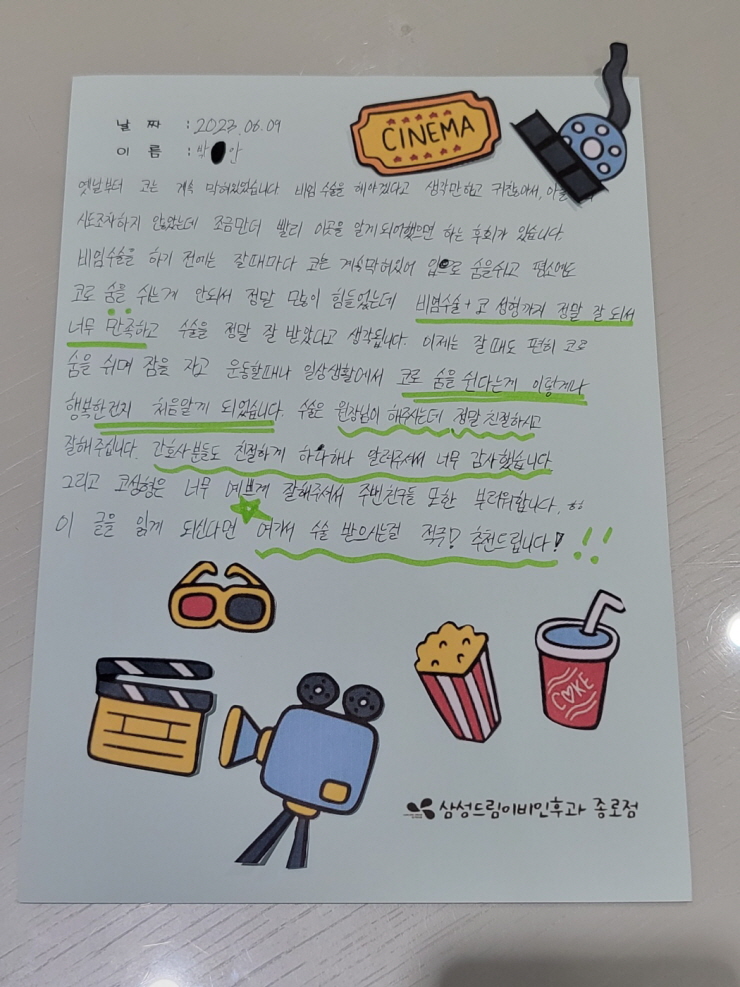 CINEMA
날 짜 : 2023.06.09
이 름 : 박 안
옛날부터 코는 계속 막혀있었습니다 비염 수술을 해야겠다고 생각만하고 귀찮아서,
시도조차하지 않았었는데 조금만더 빨리 이곳을 알게되어했으면 하는 후회가 있습니다.
비염수술을 하기 전에는 잘때마다 코는 계속막혀있어 입으로 숨을쉬고 평소에도
코로 숨을 쉬는게 안되서 정말 많이 힘들었는데 비염수술+코 성형까지 정말 잘 되서
너무 만족하고 수술을 정말 잘 받았다고 생각됩니다. 이제는 잘때도 편히 코로
숨을 쉬며 잠을 자고 운동할때나 일상생활에서 코로 숨을 쉰다는게 이렇게나
행복한건지 처음알게 되었습니다. 수술은 원장님이 해주시는데 정말 친절하시고
잘해주십니다. 간호사분들도 친절하게 하나하나 알려주셔서 너무 감사했습니다
그리고 코성형은 너무 예쁘게 잘해주셔서 주변친구들 또한 부러워합니다. ㅎㅎ
이 글을 읽게 되신다면 여기서 수술 받으시는걸 적극! 추천드립니다! !!
COKE
삼성드림이비인후과 종로점